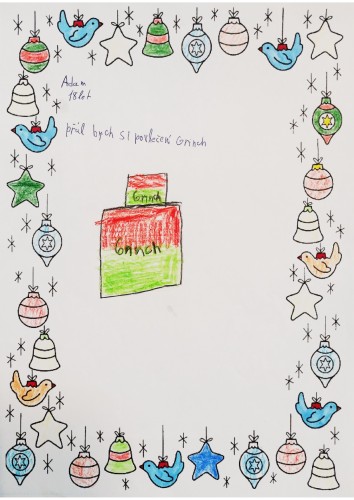 Adam
18 let
přál bych si povlečení Grinch
Grinch
Grinch